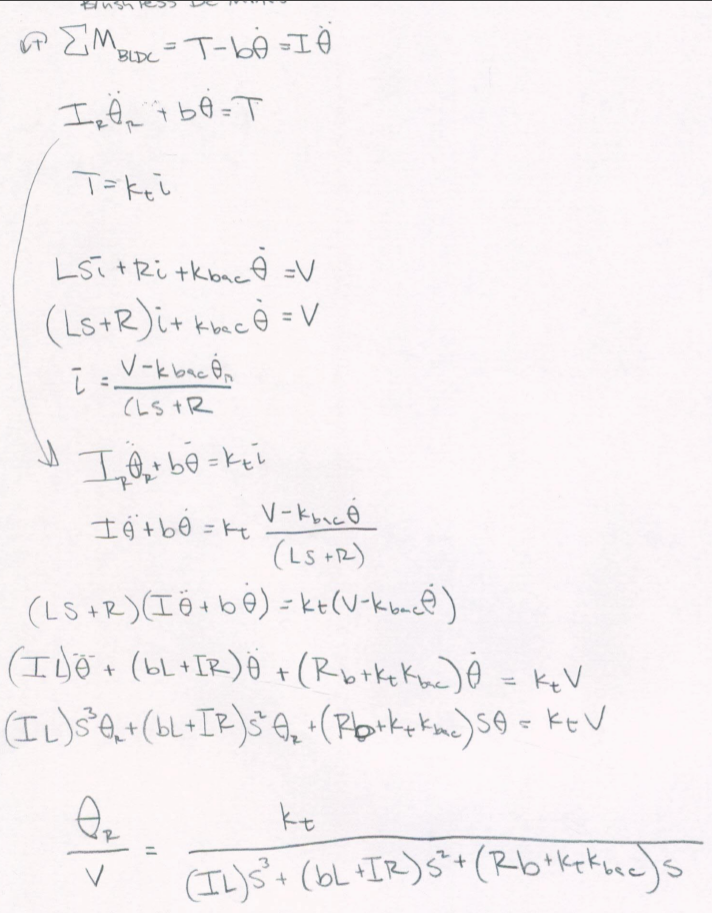 ↶+ ΣM_BLDC = T - bθ̇ = Iθ̈
I_R θ̈_R + bθ̇ = T
T = k_t i
LSi + Ri + k_bac θ̇ = V
(LS+R)i + k_bac θ̇ = V
i = (V - k_bac θ̇_R) / (LS + R
I_R θ̈_R + bθ̇ = k_t i
Iθ̈ + bθ̇ = k_t (V - k_bac θ̇) / (LS + R)
(LS + R)(Iθ̈ + bθ̇) = k_t(V - k_bac θ̇)
(IL)θ⃛ + (bL + IR)θ̈ + (Rb + k_t k_bac)θ̇ = k_t V
(IL)S³θ_R + (bL + IR)S²θ_R + (Rb + k_t k_bac)Sθ = k_t V
θ_R / V = k_t / ((IL)S³ + (bL + IR)S² + (Rb + k_t k_bac)S